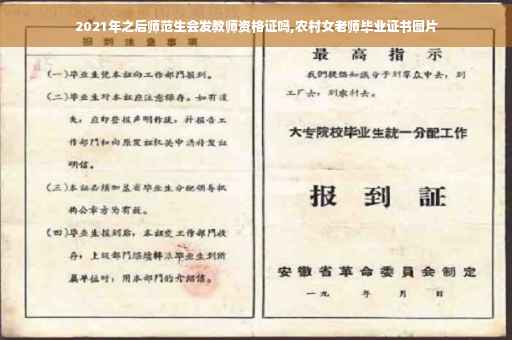 2021年之后师范生会发教师资格证吗,农村女老师毕业证书图片
报到注意事项
(一)毕业生凭本证向工作部门报到。
(二)毕业生对本证应注意保存。如有遗
失,应即登报声明作废,并报告工
作部门和向原发证机关申请补发证
明信。
(三)本证必须加盖省毕业生分配领导机
构公章方为有效。
(四)毕业生报到后,本证交工作部门收
存;上级部门
毕业生到所
属单位时,用本部门的介绍信。
最高指示
我们提倡知识分子到群众中去,到
工厂去,到农村去。
大专院校毕业生统一分配工作
报到证
安徽省革命委员会制定
一九 年 月 日